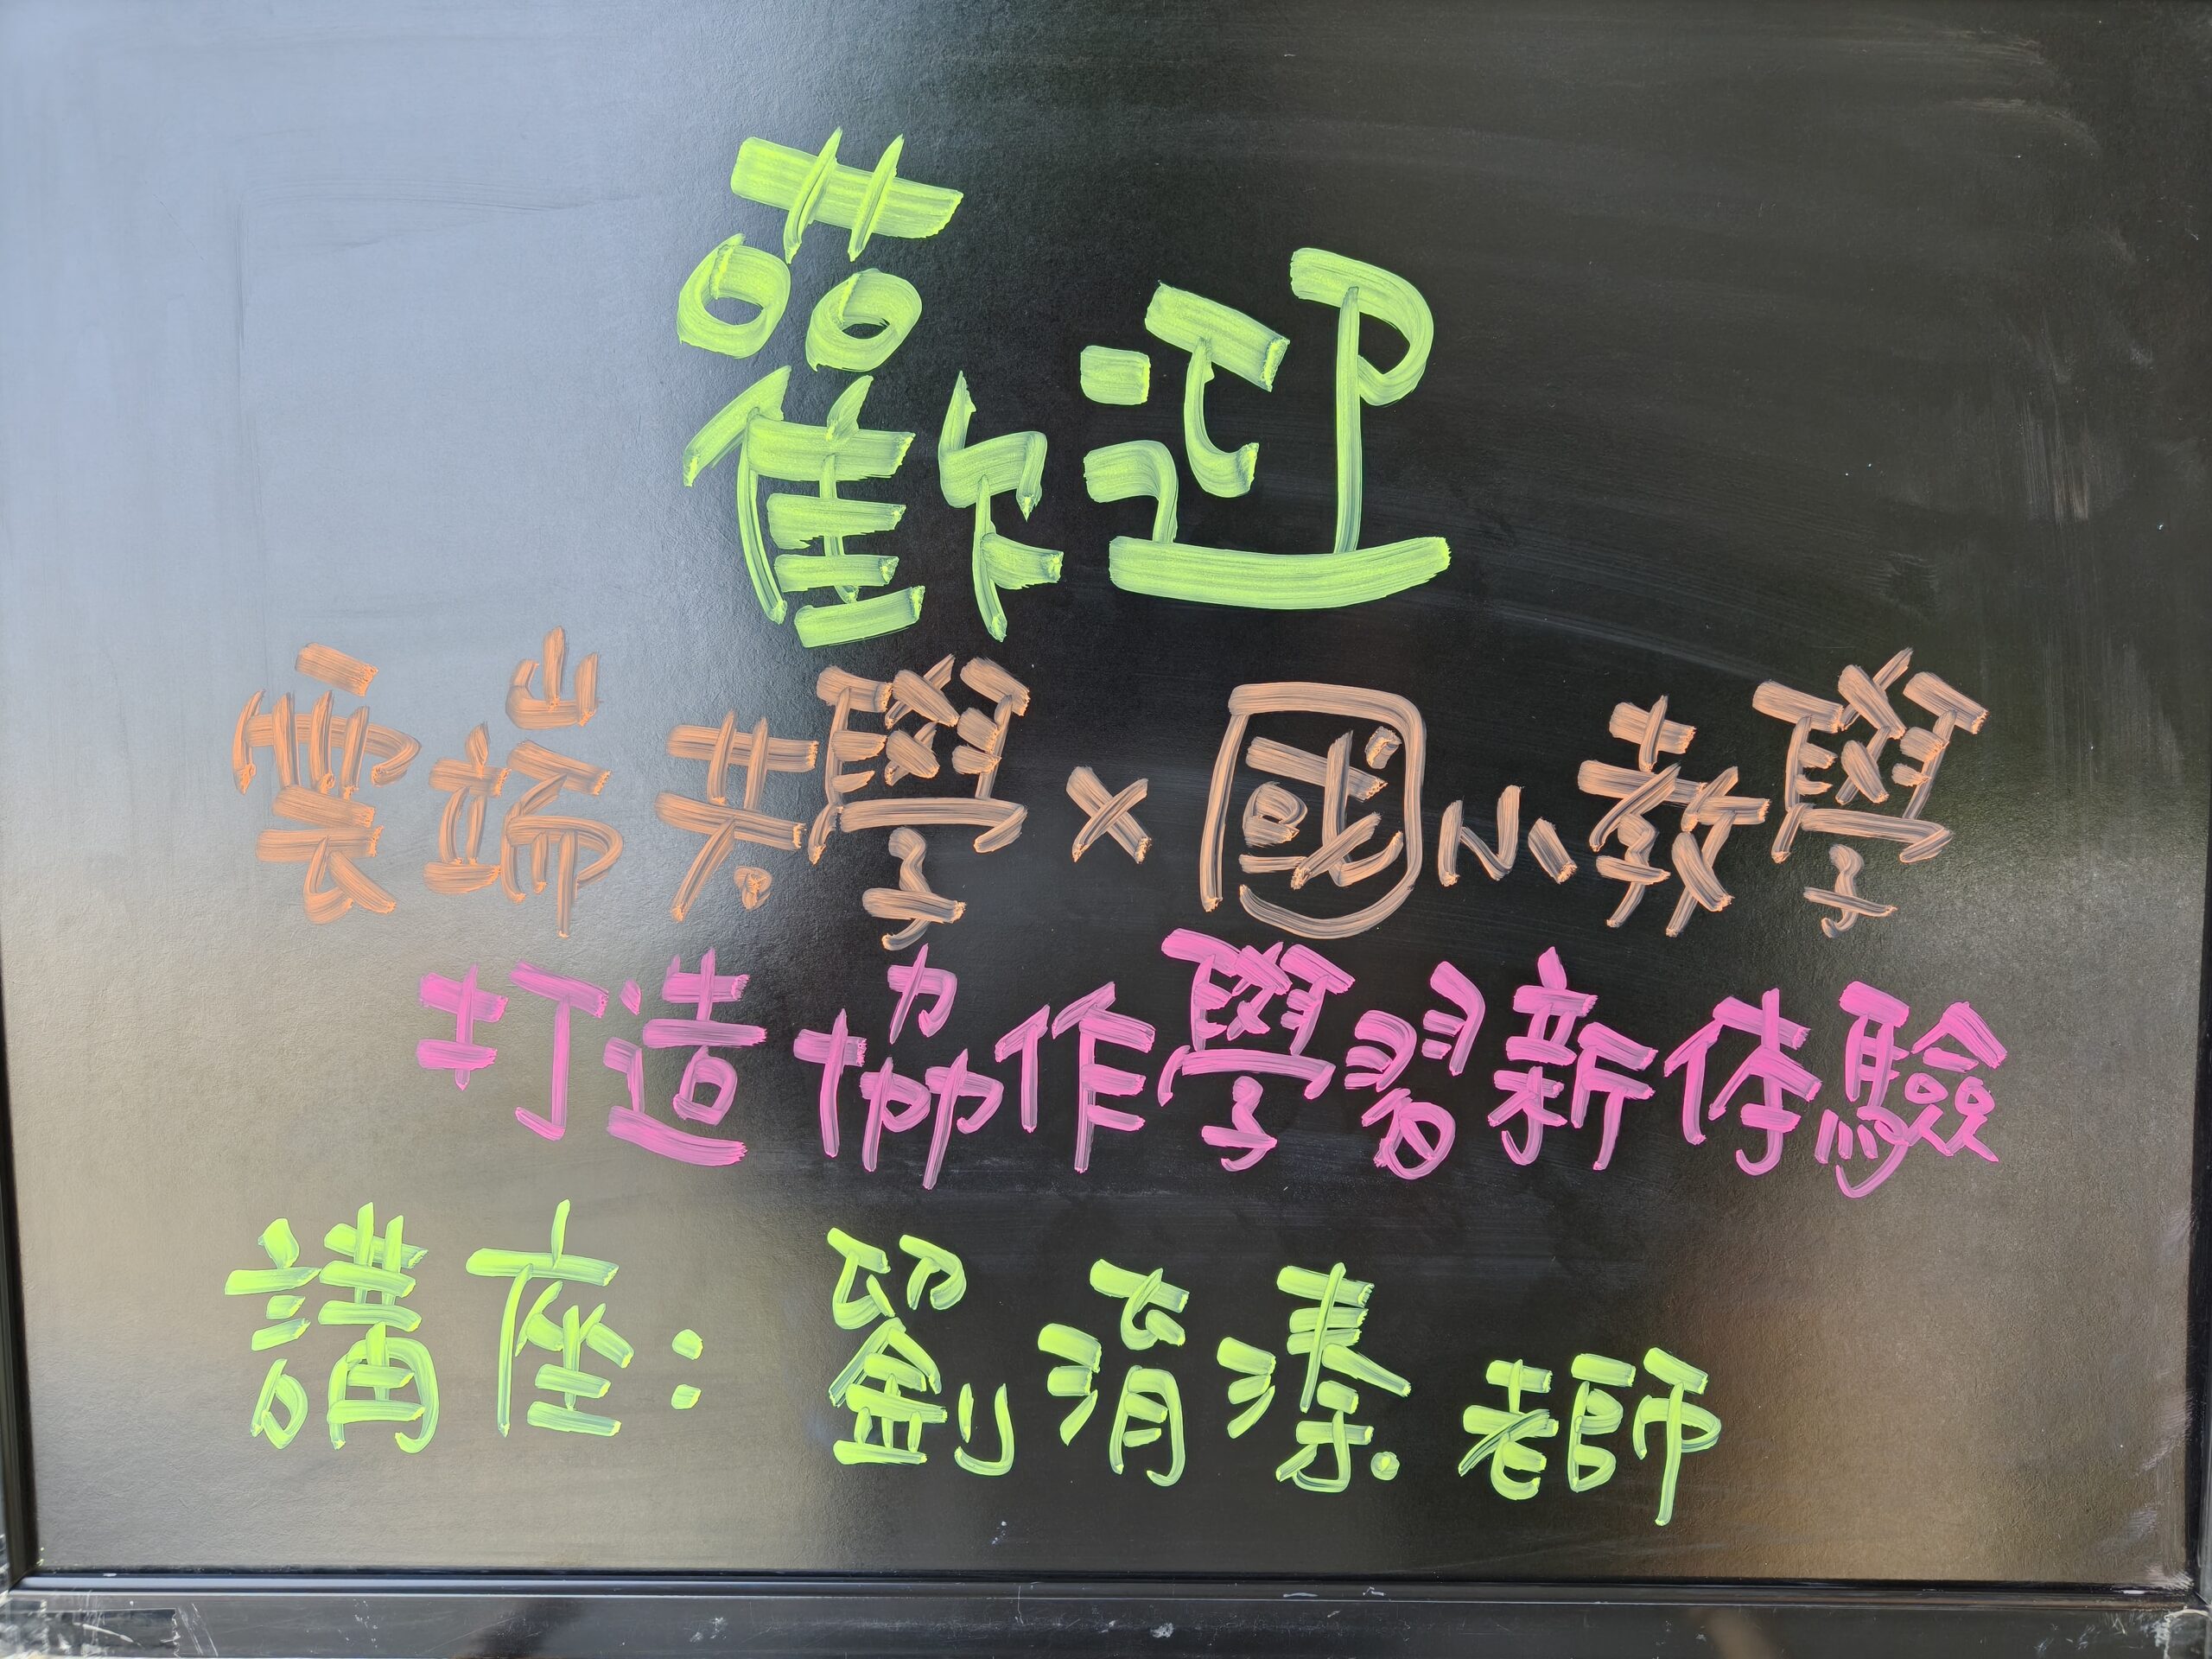 歡迎
雲端共學×國小教學
打造協作學習新体驗
講座：劉淯溱老師